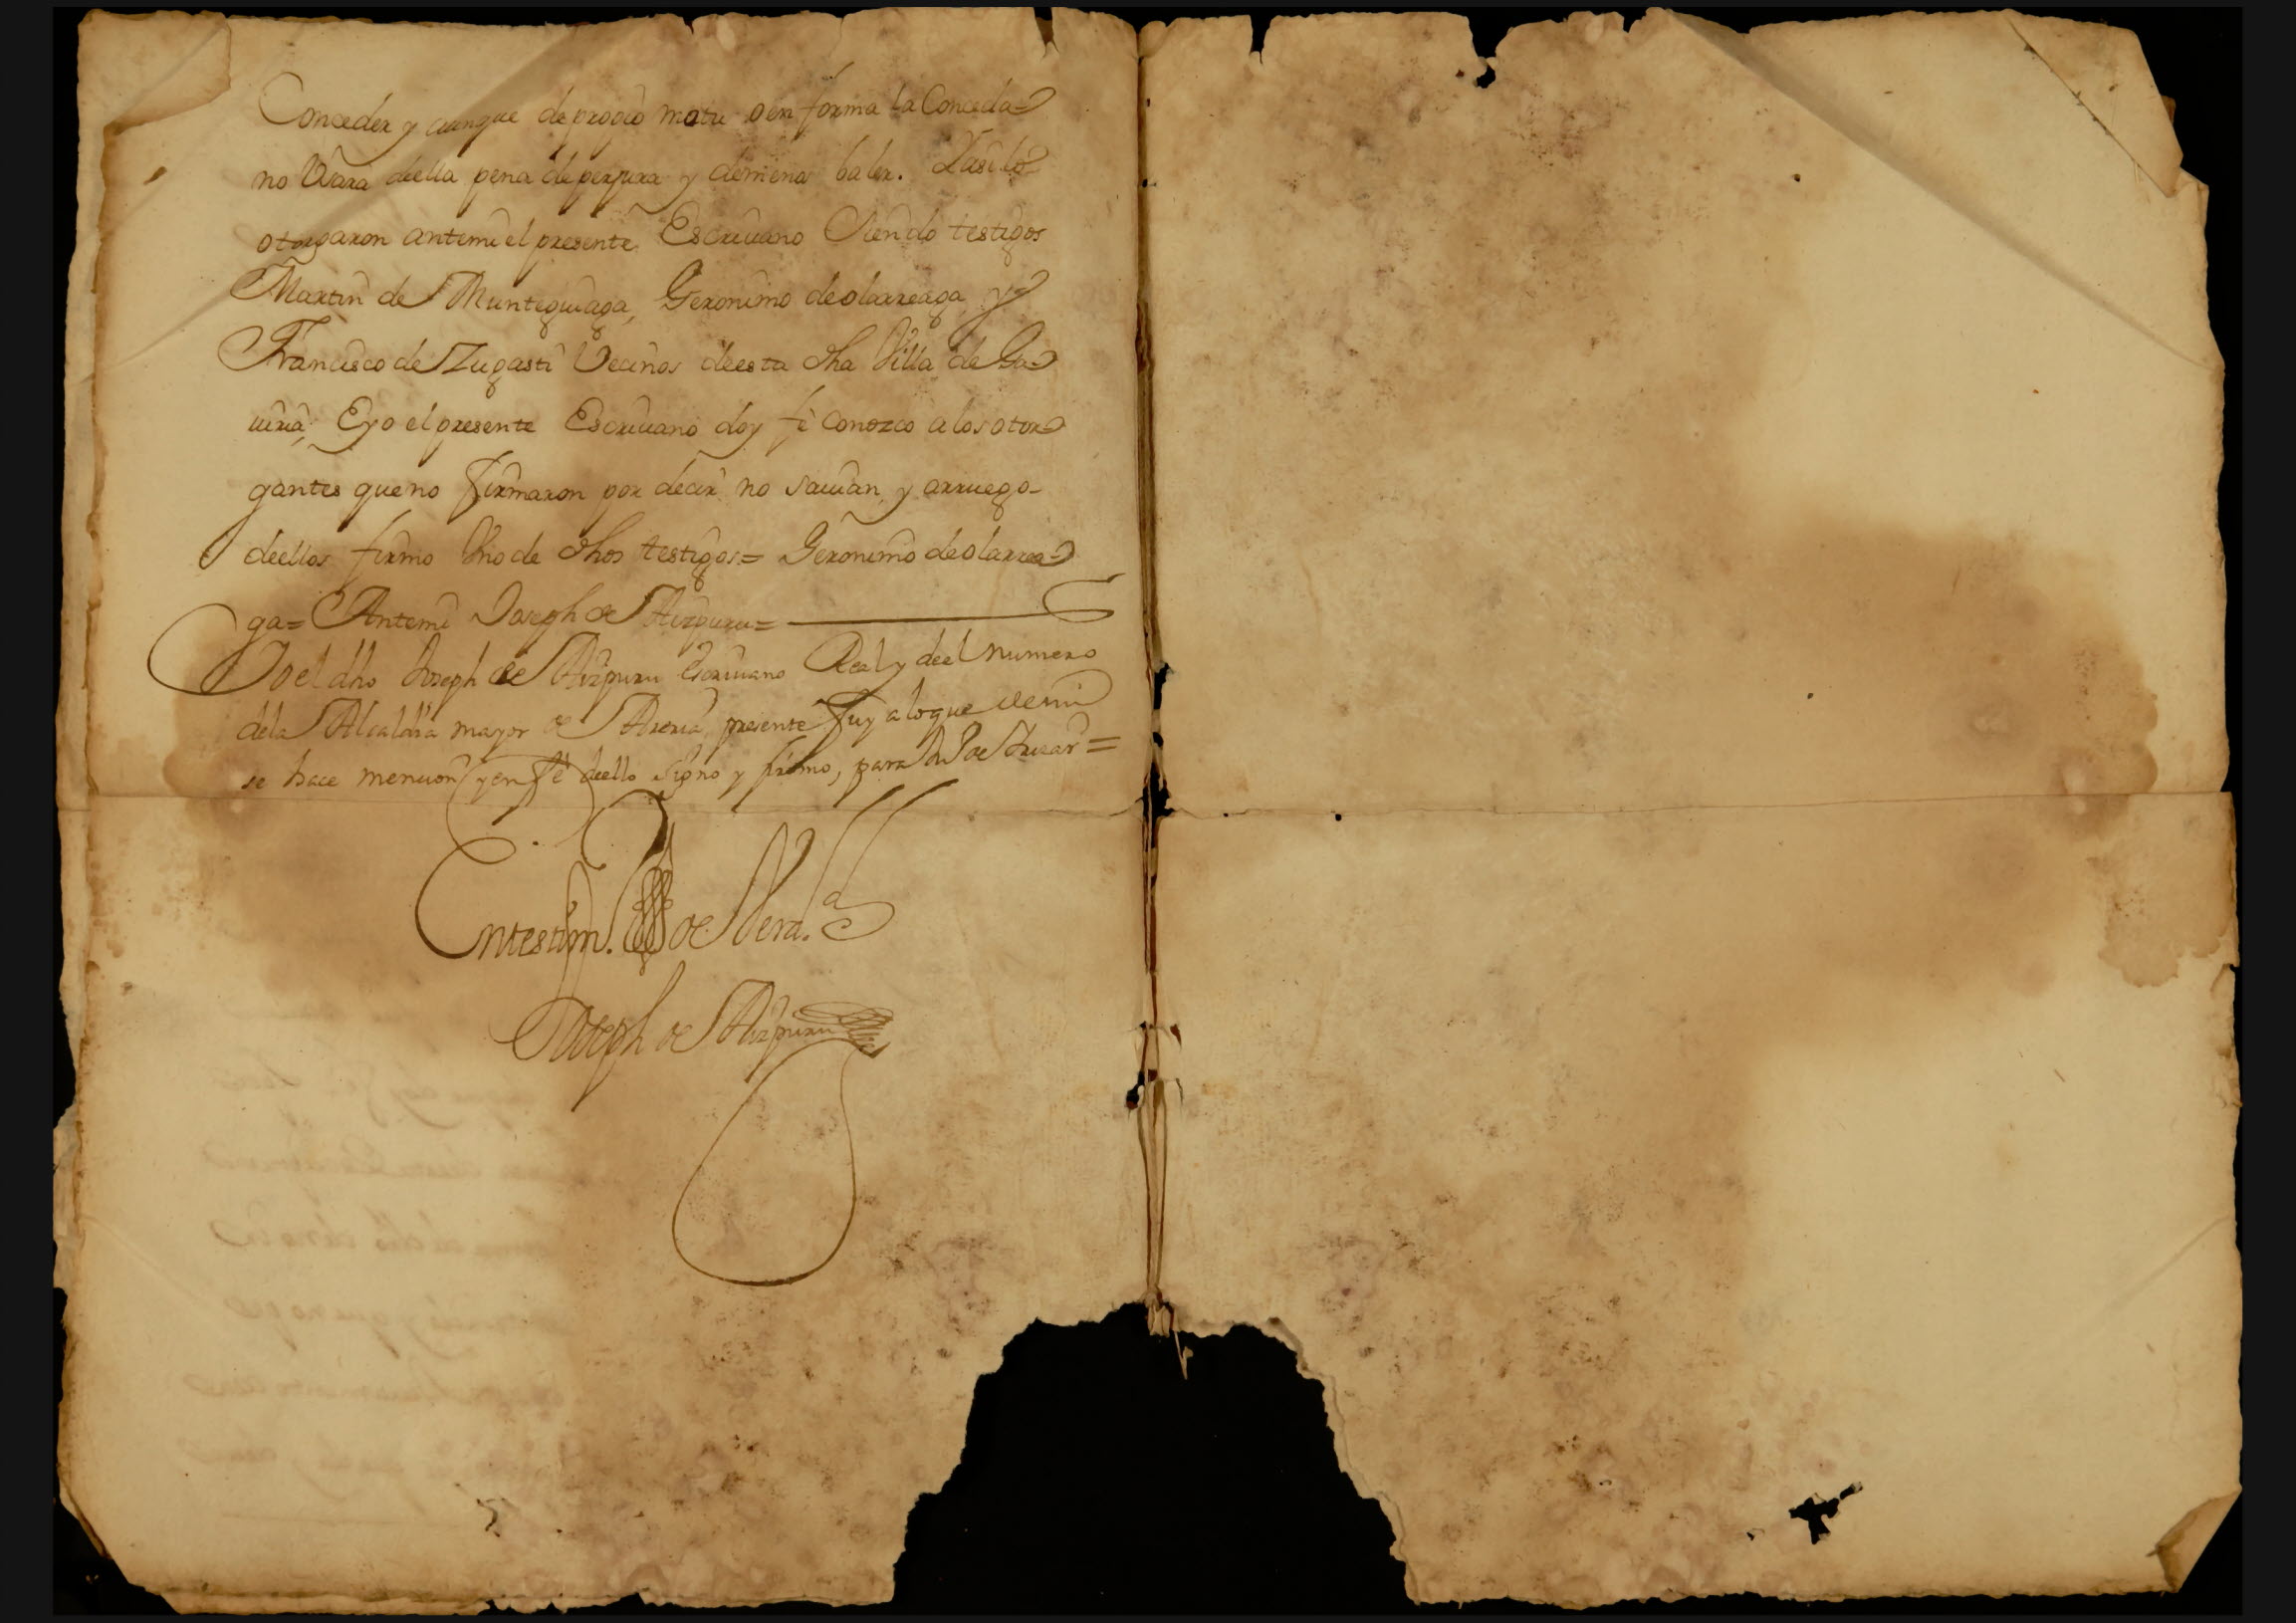 Conceder y aunque de propio motu o en forma la Conceda
no Vsara deella pena de perjura y demenos baler. Yasilo
otorgaron antemi el presente Escriuano Siendo testigos
Martin de Munteguiaga, Geronimo deolarreaga, y
Francisco de Zugasti Vecinos deesta dha Villa de Ga
uiria, Eyo el presente Escriuano doy fè conozco a los otor
gantes que no firmaron por decir no sauian, y arruego
deellos firmo Vno de dhos testigos= Geronimo deolarrea
ga= Antemi Joseph de Aizpuru=
Yo el dho Joseph de Aizpuru Escriuano Real y deel numero
dela Alcaldia mayor de Areria, presente fuy a lo que de mi
se hace mencion, y en fè deello Signo y firmo, para
Entestim.º de Verd.
Joseph de Aizpuru